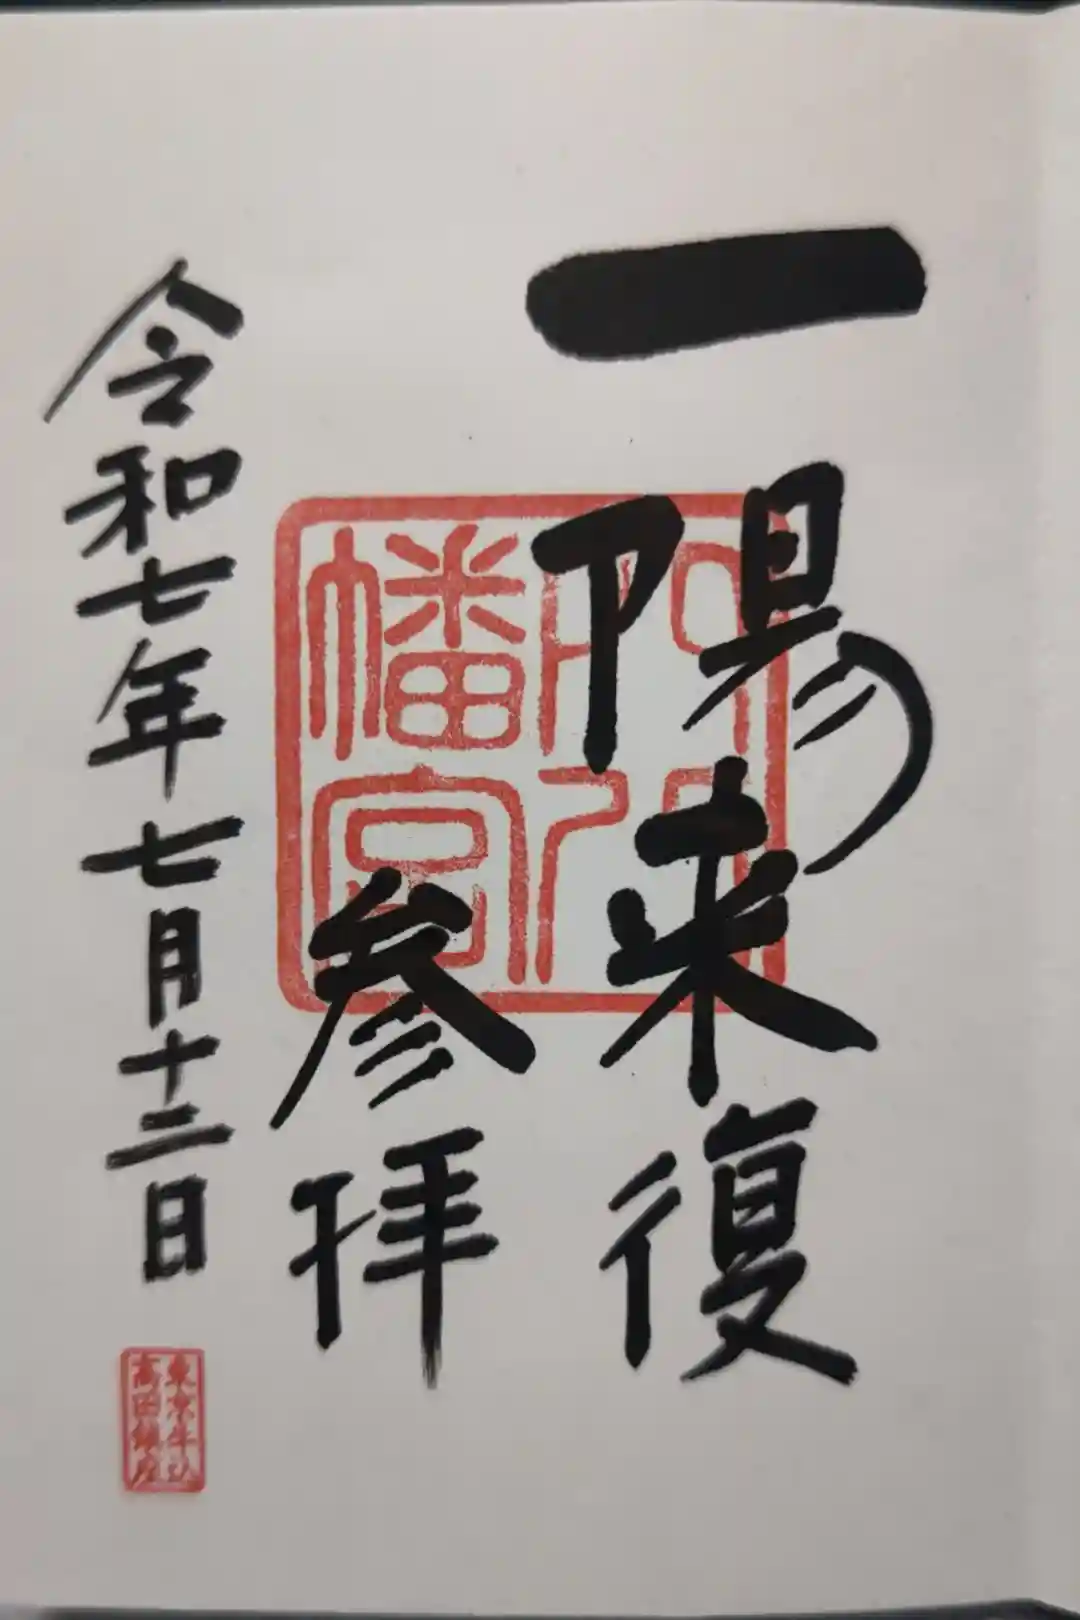 一陽来復
参拝
令和七年七月十二日
穴八幡宮
東京牛込
高田鎮座